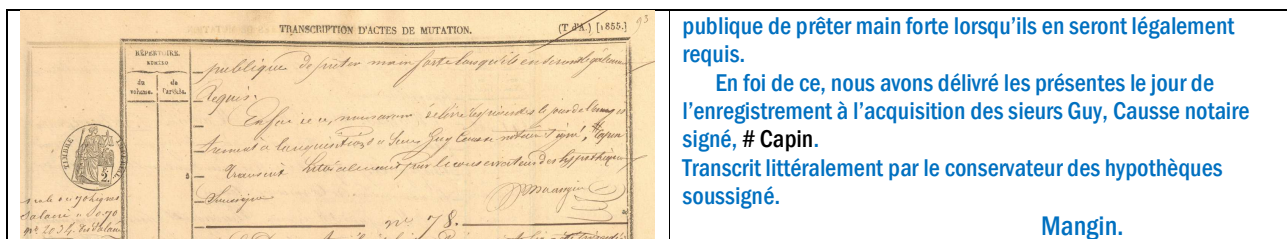 TRANSCRIPTION D'ACTES DE MUTATION.
(T. d'A.) [1855.]
93
RÉPERTOIRE.
NUMÉRO
du volume.
de l'article.
publique de prêter main forte lorsqu'ils en seront légalement
requis.
En foi de ce, nous avons délivré les présentes le jour de l'enregis
trement à l'acquisition des Sieurs Guy, Causse notaire signé,
Transcrit littéralement par le conservateur des hypothèques
Soussigné
Mangin
TIMBRE IMPÉRIAL
n° 78.
publique de prêter main forte lorsqu'ils en seront légalement
requis.
En foi de ce, nous avons délivré les présentes le jour de
l'enregistrement à l'acquisition des sieurs Guy, Causse notaire
signé, # Capin.
Transcrit littéralement par le conservateur des hypothèques
soussigné.
Mangin.